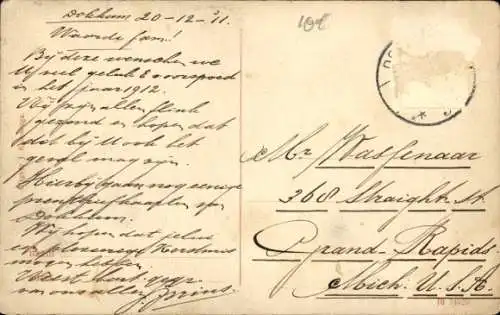 Dokkum 20-12-'11.
Waarde fam!
Bij deze wenschen we
U veel geluk & voorspoed
in het jaar 1912.
Wij zijn allen flink
gezond en hopen dat
dat bij U ook het
geval mag zijn.
Hierbij gaan nog eenige
prentbriefkaarten van
Dokkum.
Wij hopen dat jelui
een Kerstmis
mogen hebben
Weest
van ons allen J. Prins.
Mr Wassenaar
368 Straight St.
Grand-Rapids
Mich. U.S.A.